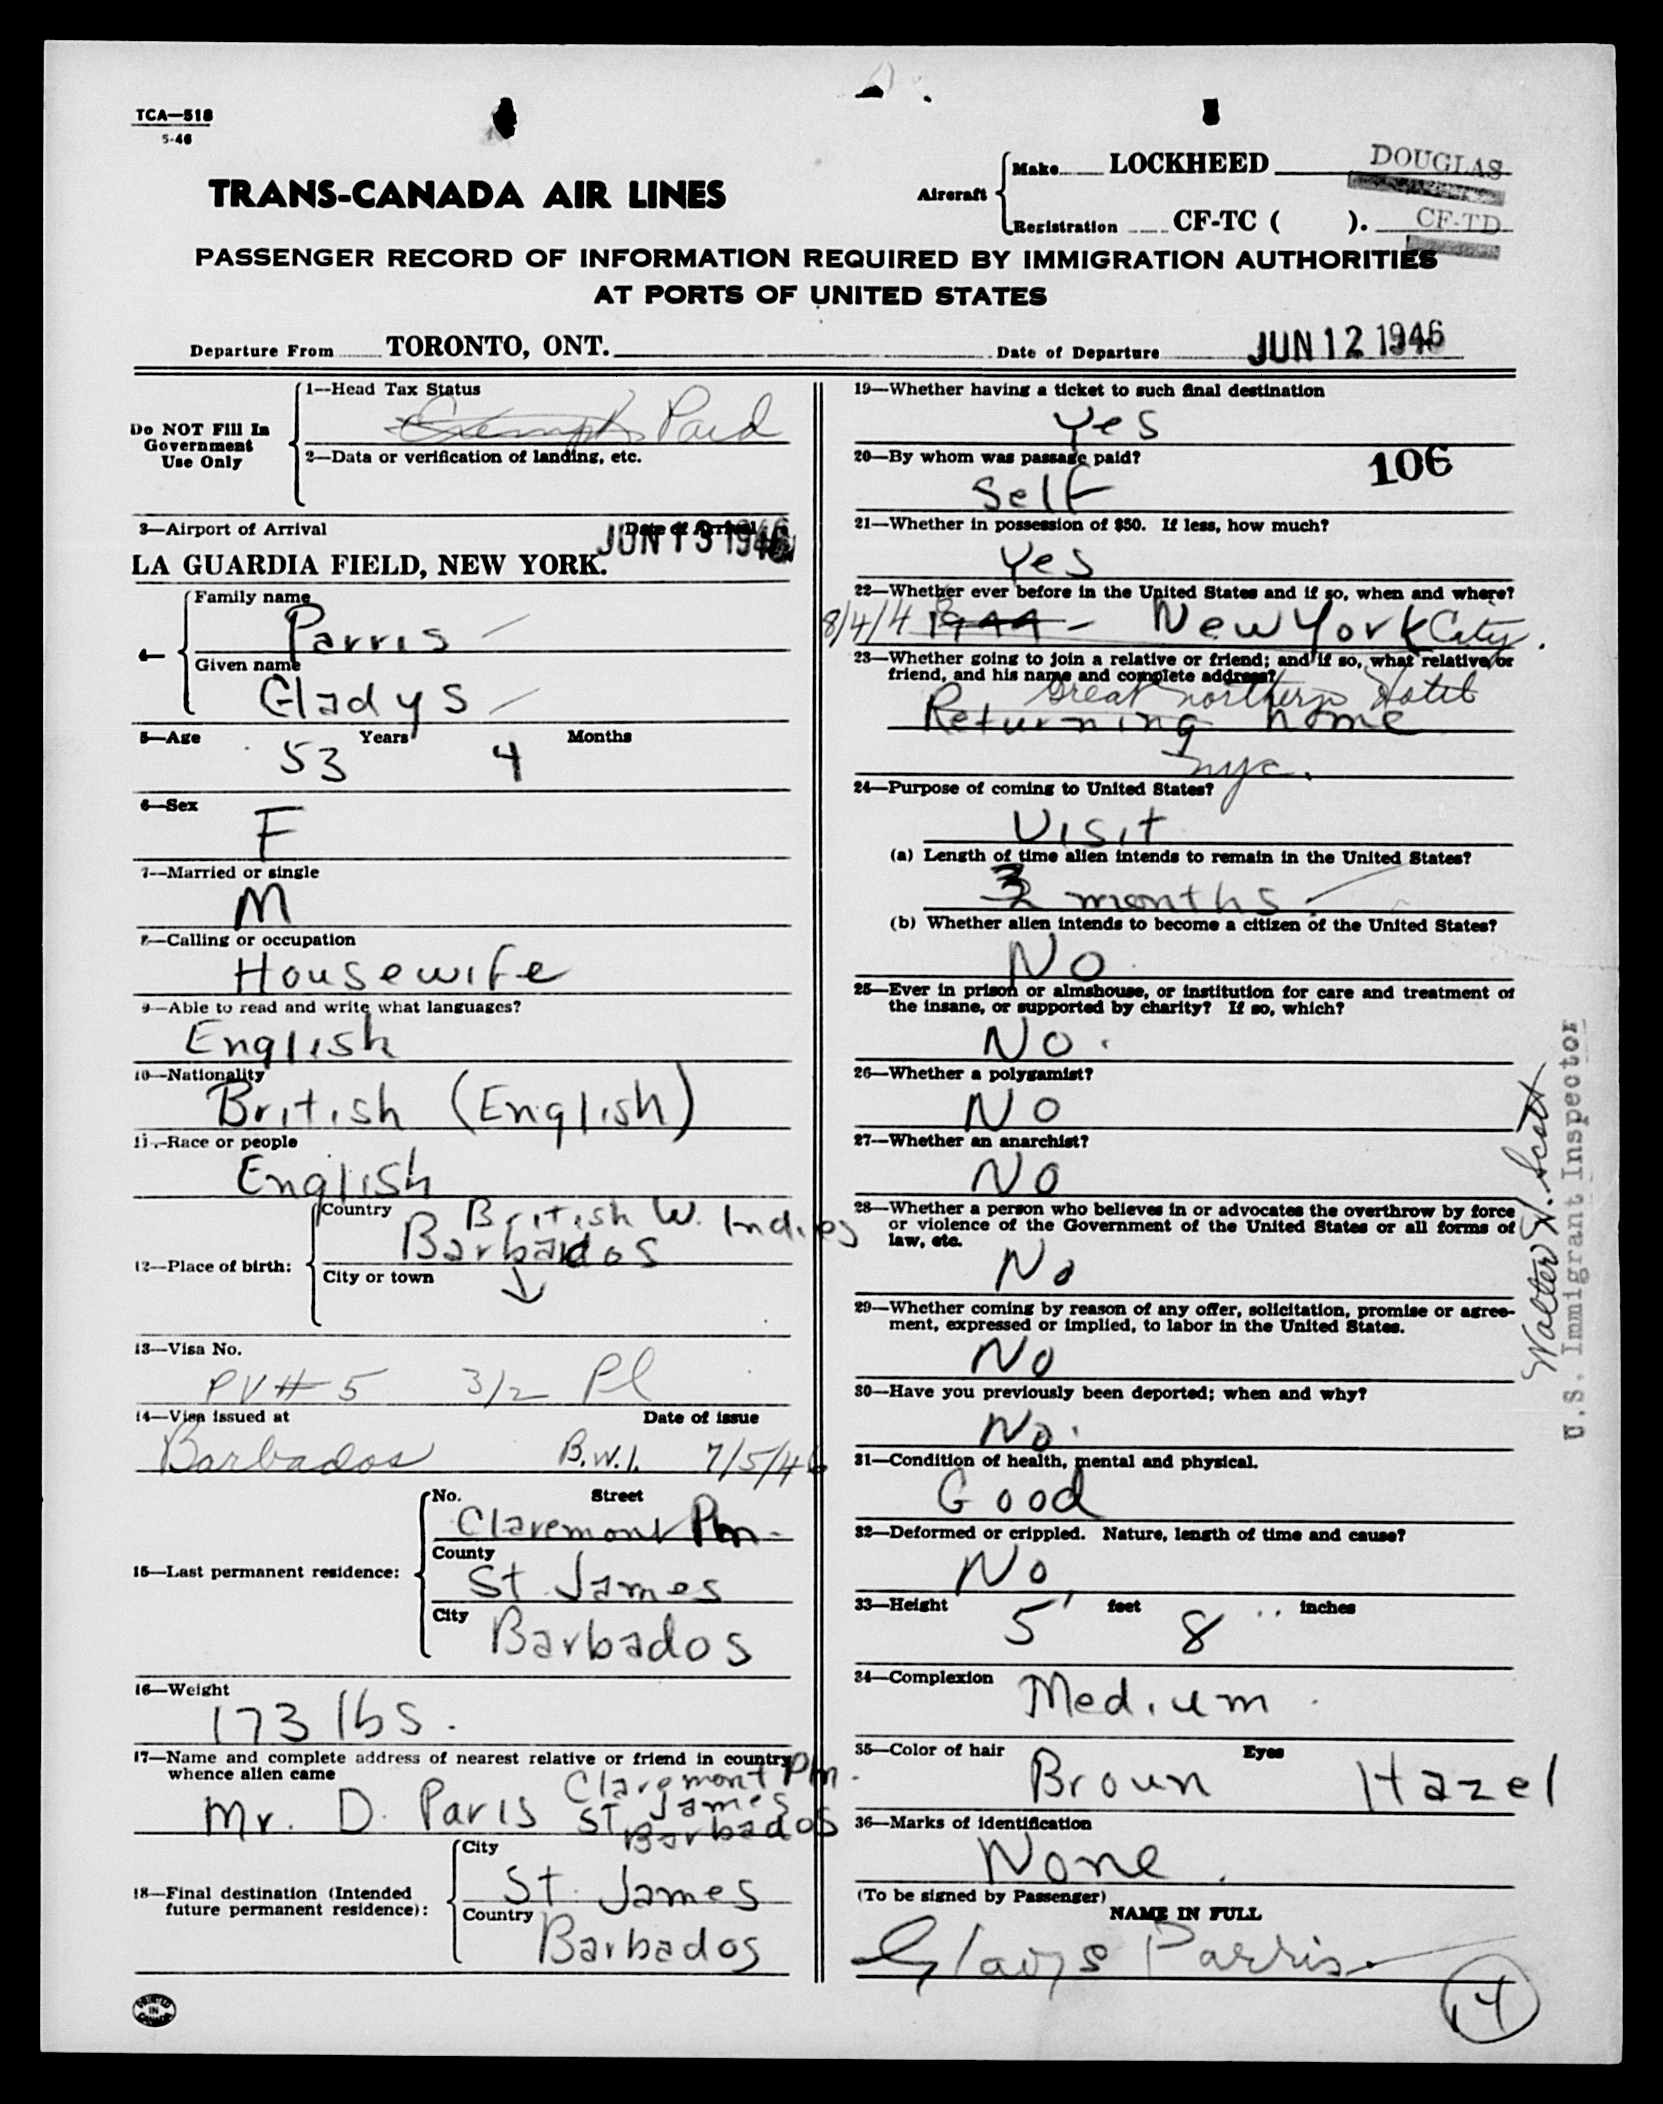 TCA—518
5-46
TRANS-CANADA AIR LINES
Aircraft
Make LOCKHEED DOUGLAS
Registration CF-TC ( ). CF-TD
PASSENGER RECORD OF INFORMATION REQUIRED BY IMMIGRATION AUTHORITIES
AT PORTS OF UNITED STATES
Departure From TORONTO, ONT. Date of Departure JUN 12 1946
Do NOT Fill In
Government
Use Only
1—Head Tax Status
Exempt Paid
2—Data or verification of landing, etc.
3—Airport of Arrival Date of Arrival
LA GUARDIA FIELD, NEW YORK. JUN 13 1946
4—
Family name
Parris
Given name
Gladys
5—Age Years Months
53 4
6—Sex
F
7—Married or single
M
8—Calling or occupation
Housewife
9—Able to read and write what languages?
English
10—Nationality
British (English)
11—Race or people
English
12—Place of birth:
Country British W. Indies
Barbados
City or town
13—Visa No.
PV# 5 3/2 Pl
14—Visa issued at Date of issue
Barbados B.W.I. 7/5/46
15—Last permanent residence:
No. Street
Claremont Pm
County
St James
City
Barbados
16—Weight
173 lbs.
17—Name and complete address of nearest relative or friend in country
whence alien came Claremont Pm.
Mr. D. Paris St. James
Barbados
18—Final destination (Intended
future permanent residence):
City
St. James
Country
Barbados
PRINTED IN CANADA
19—Whether having a ticket to such final destination
Yes
20—By whom was passage paid? 106
Self
21—Whether in possession of $50. If less, how much?
Yes
22—Whether ever before in the United States and if so, when and where?
8/4/4 1944 - New York City.
23—Whether going to join a relative or friend; and if so, what relative or
friend, and his name and complete address?
Great northern Hotel
Returning home
nyc.
24—Purpose of coming to United States?
Visit
(a) Length of time alien intends to remain in the United States?
3 months
(b) Whether alien intends to become a citizen of the United States?
No
25—Ever in prison or almshouse, or institution for care and treatment of
the insane, or supported by charity? If so, which?
No.
26—Whether a polygamist?
No
27—Whether an anarchist?
No
28—Whether a person who believes in or advocates the overthrow by force
or violence of the Government of the United States or all forms of
law, etc.
No
29—Whether coming by reason of any offer, solicitation, promise or agree-
ment, expressed or implied, to labor in the United States.
No
30—Have you previously been deported; when and why?
No.
31—Condition of health, mental and physical.
Good
32—Deformed or crippled. Nature, length of time and cause?
No
33—Height feet inches
5' 8''
34—Complexion Medium
35—Color of hair Eyes
Brown Hazel
36—Marks of identification
None.
(To be signed by Passenger)
NAME IN FULL
Gladys Parris
14
Walter H. Scott
U.S. Immigrant Inspector